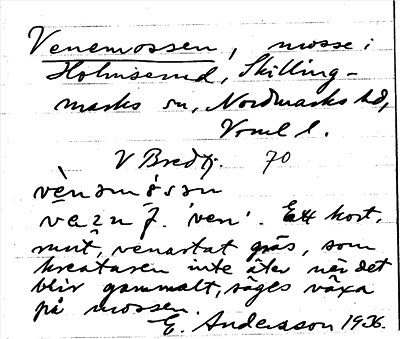 Venemossen, mosse i
Holmserud, Skilling-
marks sn, Nordmarks hd,
Vrml l.
V Bredfj. 70
vènəmòsən
ven f. 'ven'. Ett kort,
smut, venartat gräs, som
kreaturen inte äter när det
blir gammalt, säges växa
på mossen.
E. Andersson 1936.